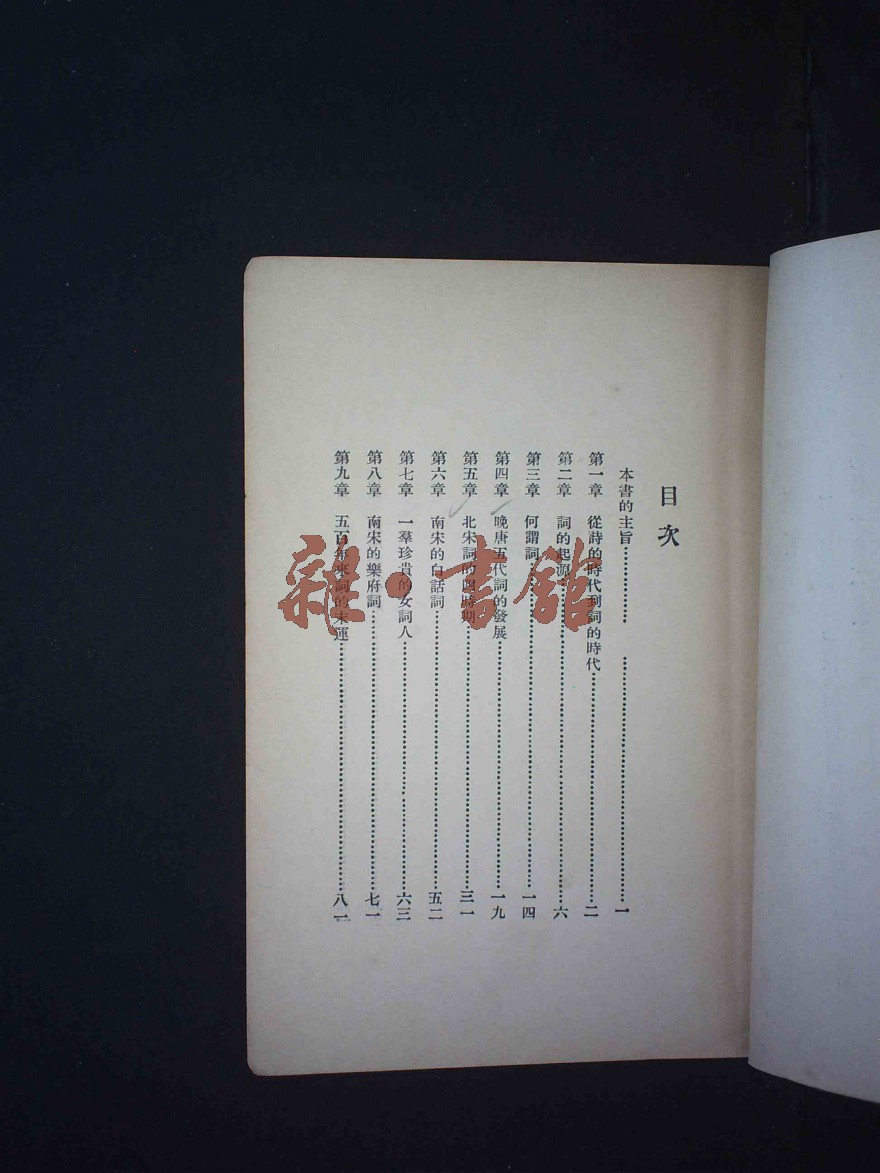 目次
本書的主旨……一
第一章 從詩的時代到詞的時代……二
第二章 詞的起源……六
第三章 何謂詞……一四
第四章 晚唐五代詞的發展……一九
第五章 北宋詞的四時期……三一
第六章 南宋的白話詞……五二
第七章 一羣珍貴的女詞人……六三
第八章 南宋的樂府詞……七一
第九章 五百年來詞的末運……八一
雜·書館